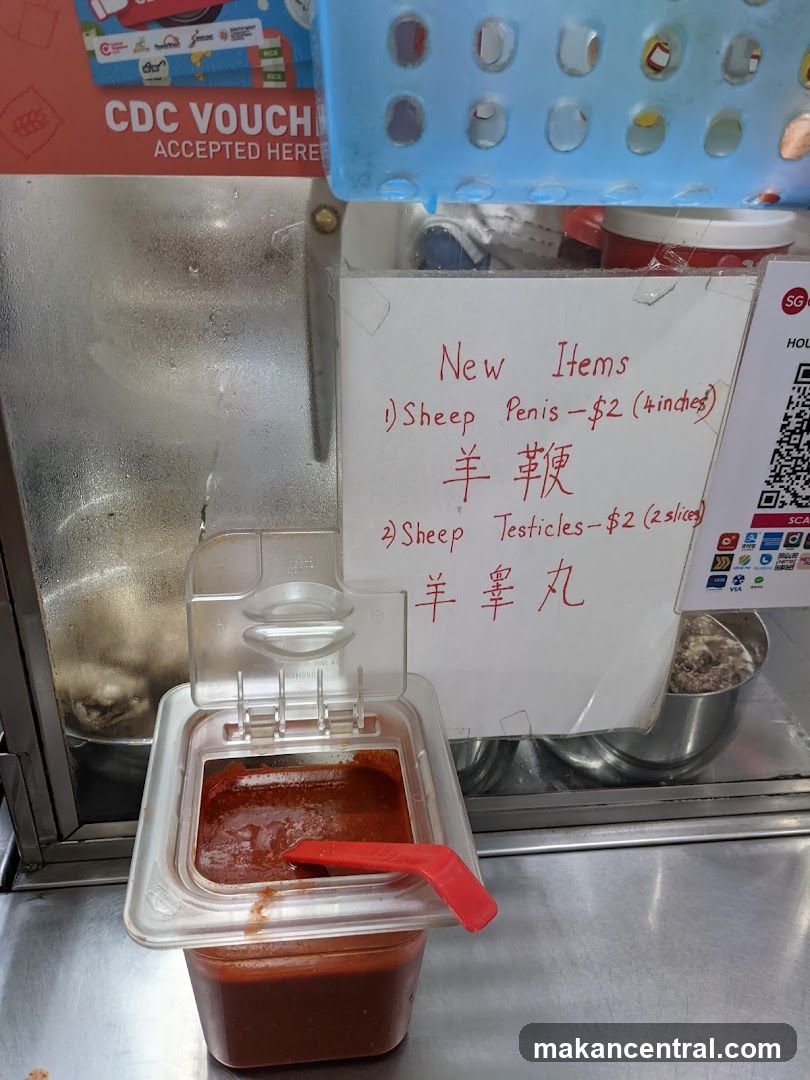 CDC VOUCH
ACCEPTED HERE
RICE
RICE
New Items
1) Sheep Penis - $2 (4 inches)
羊鞭
2) Sheep Testicles - $2 (2 slices)
羊睾丸
SG
HOU
SCA
VIA
makancentral.com